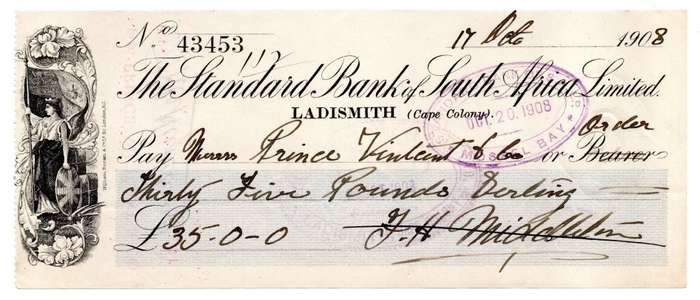 No 43453 17 Oct 1908
The Standard Bank of South Africa Limited.
LADISMITH (Cape Colony).
OCT 20 1908
MOSSEL BAY
Order
Pay Messrs Prince Vintcent & Co or Bearer
Thirty Five Pounds Sterling
£35-0-0